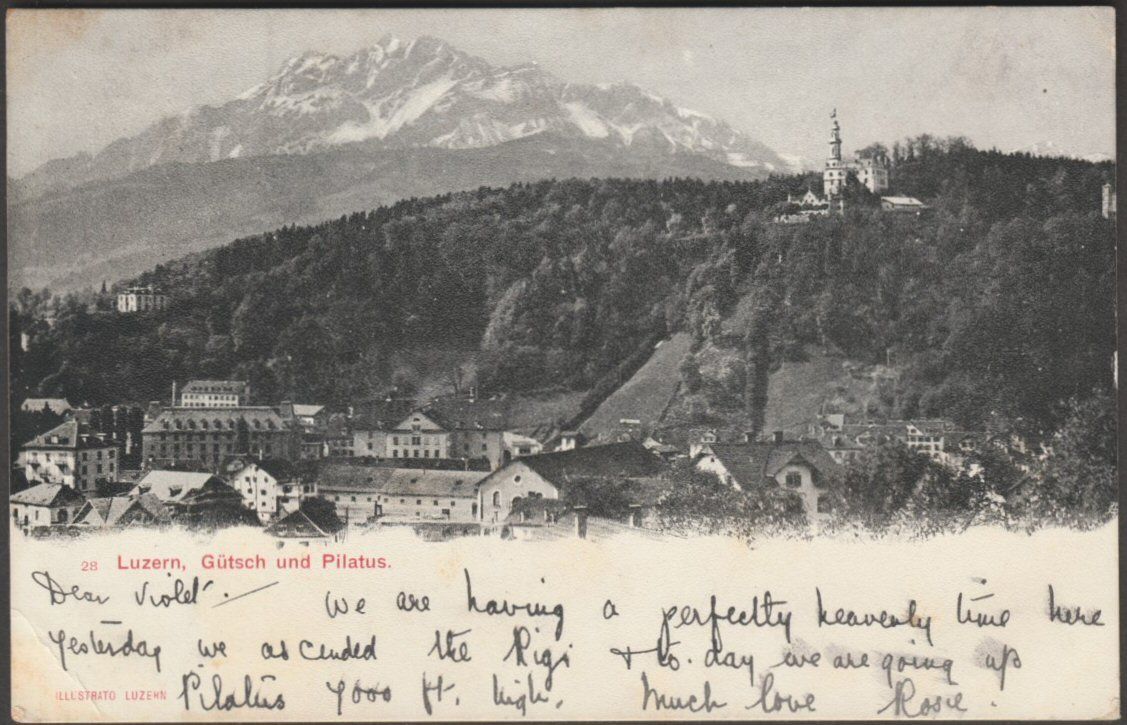 28 Luzern, Gütsch und Pilatus.
Dear Violet.— We are having a perfectly heavenly time here
Yesterday we ascended the Rigi & to.day we are going up
Pilatus 7000 ft. high. Much love Rosie.
ILLUSTRATO LUZERN